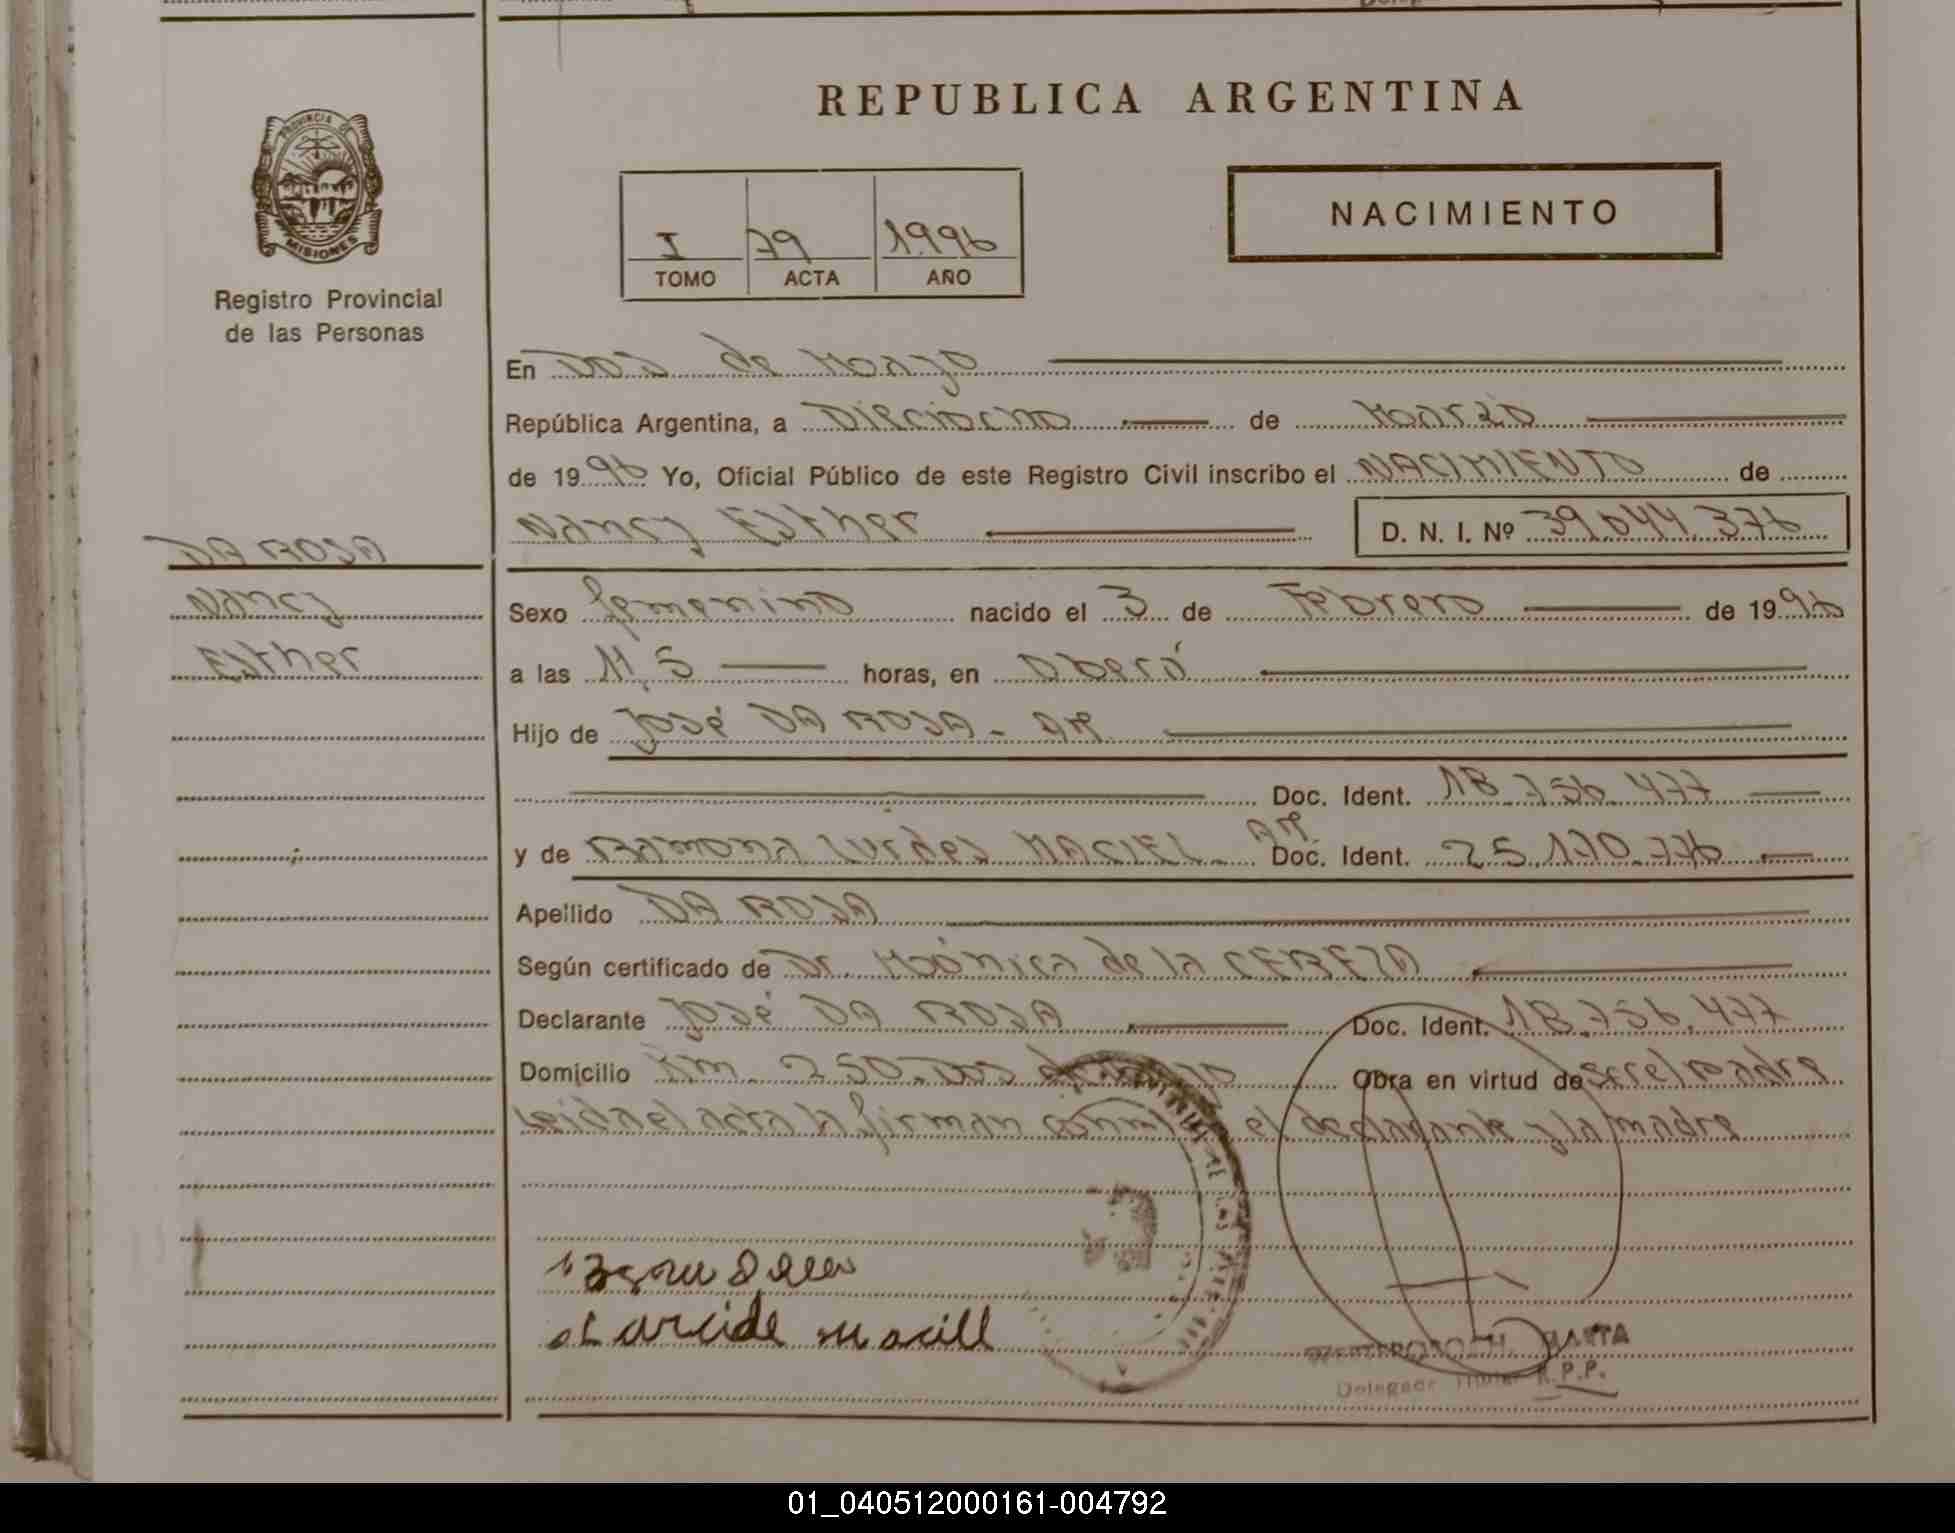 REPUBLICA ARGENTINA
PROVINCIA DE
MISIONES
Registro Provincial
de las Personas
I 79 1996
TOMO ACTA AÑO
NACIMIENTO
En Dos de Mayo
República Argentina, a Dieciocho de Marzo
de 1996 Yo, Oficial Público de este Registro Civil inscribo el NACIMIENTO de
Nancy Esther D. N. I. Nº 39.044.376
DA ROSA
Nancy
Esther
Sexo femenino nacido el 3 de Febrero de 1996
a las 11,5 horas, en Oberá
Hijo de José DA ROSA - AR.
Doc. Ident. 18.756.477
y de RAMONA Lurdes MACIEL - AR. Doc. Ident. 25.170.776
Apellido DA ROSA
Según certificado de Dr. Mónica de la CEREZA
Declarante José DA ROSA Doc. Ident. 18.756.477
Domicilio Km. 250. Dos de Mayo Obra en virtud de ser el padre
Leida el acta la firman conmigo el declarante y la madre
MARTA
Delegada Titular R.P.P.
01_040512000161-004792